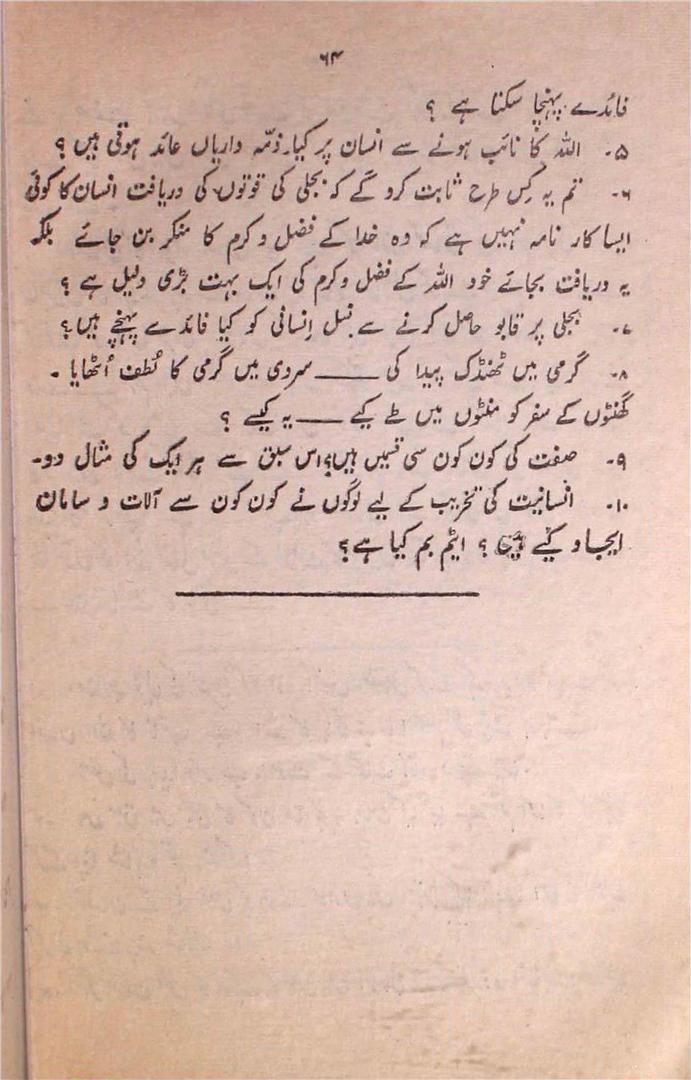 ۶۴
فائدے پہنچا سکتا ہے ؟
۵۔ اللہ کا نائب ہونے سے انسان پر کیا ذمّہ داریاں عائد ہوتی ہیں ؟
۶۔ تم یہ کِس طرح ثابت کرو گے کہ بجلی کی قوتوں کی دریافت انسان کا کوئی
ایسا کار نامہ نہیں ہے کہ وہ خدا کے فضل و کرم کا منکر بن جائے بلکہ
یہ دریافت بجائے خود اللہ کے فضل و کرم کی ایک بہت بڑی دلیل ہے ؟
۷۔ بجلی پر قابو حاصل کرنے سے نسلِ اِنسانی کو کیا فائدے پہنچے ہیں؟
۸۔ گرمی میں ٹھنڈک پیدا کی ـــــ سردی میں گرمی کا لُطف اُٹھایا ۔
گھنٹوں کے سفر کو منٹوں میں طے کیے ـــــ یہ کیسے ؟
۹۔ صفت کی کون کون سی قسمیں ہیں؟ اس سبق سے ہر ایک کی مثال دو۔
۱۰۔ انسانیت کی تخریب کے لیے لوگوں نے کون کون سے آلات و سامان
ایجاد کیے ہیں ؟ ایٹم بم کیا ہے؟